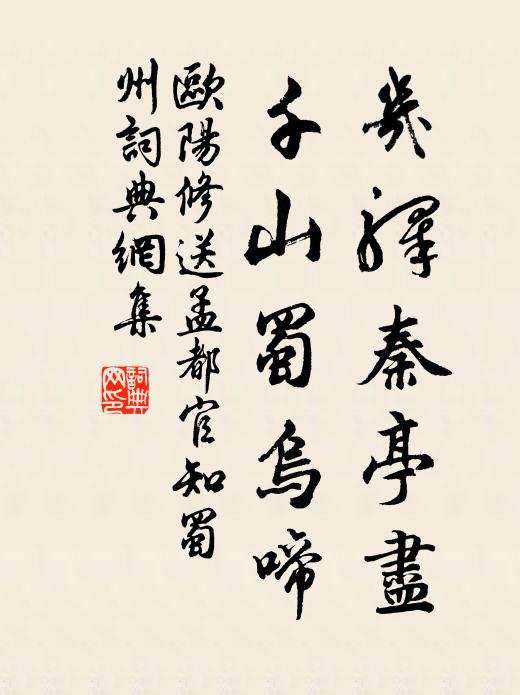 幾驛秦亭盡
千山蜀鳥啼
歐陽修送孟都官知蜀
州詞典網集
詞典
網印